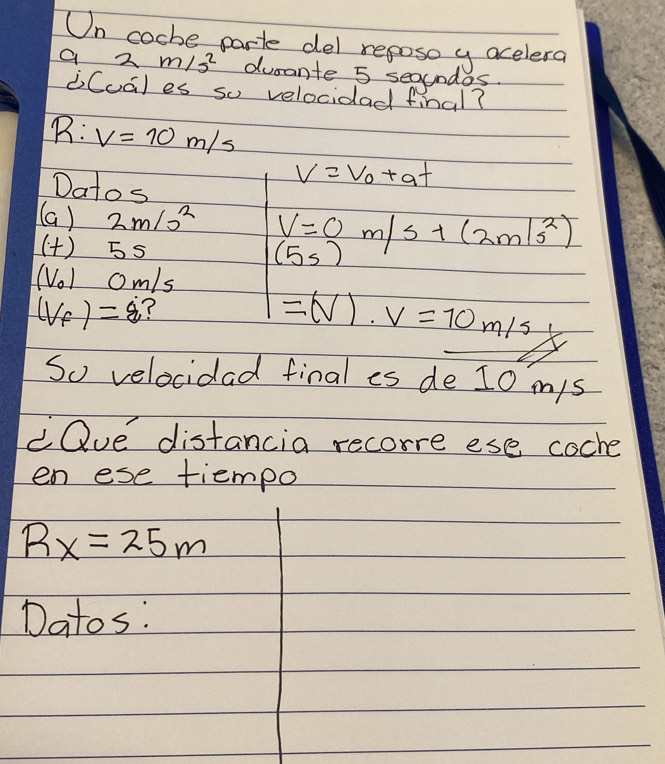 Un coche parte del reposo y acelera
a 2 m/s² durante 5 segundos.
¿Cuál es su velocidad final?
R: V = 10 m/s
Datos
(a) 2m/s²
(t) 5s
(Vo) 0m/s
(Vf) = ?
V = Vo + at
V = 0 m/s + (2m/s²)
(5s)
= (V). V = 10 m/s
Su velocidad final es de 10 m/s
¿Qué distancia recorre ese coche
en ese tiempo
Rx = 25m
Datos: